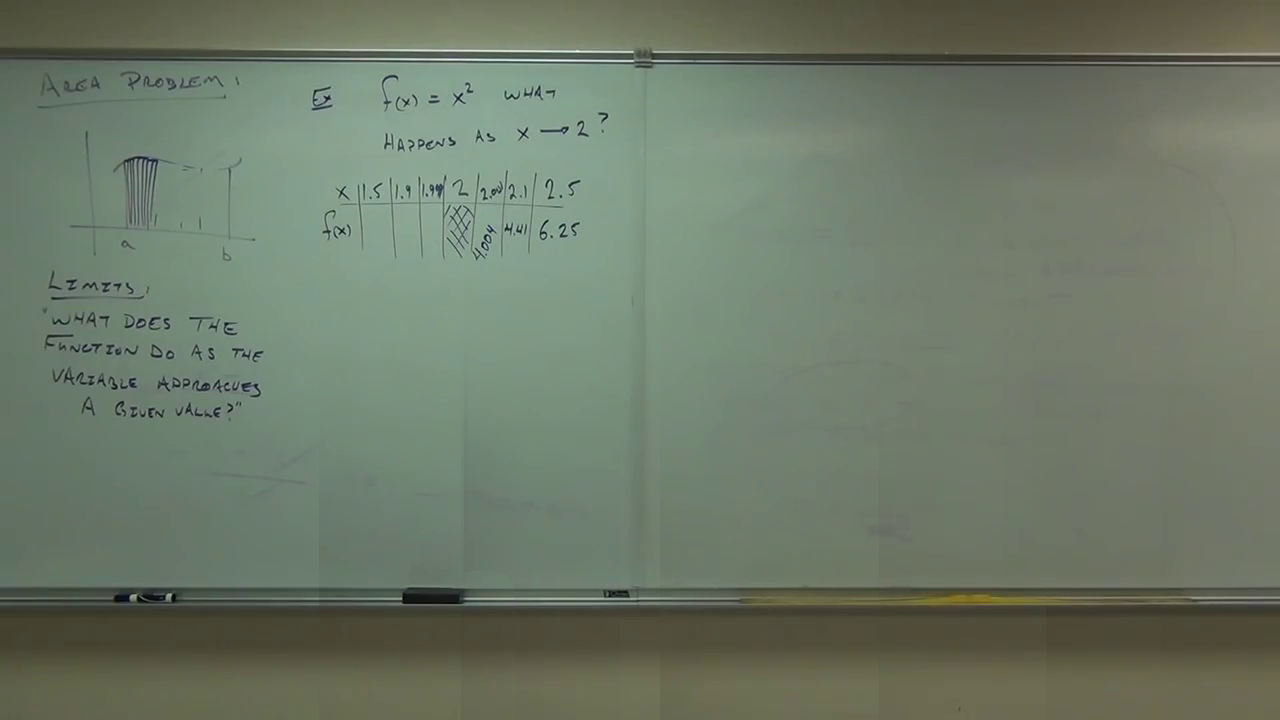 AREA PROBLEM:
a
b
LIMITS:
"WHAT DOES THE
FUNCTION DO AS THE
VARIABLE APPROACHES
A GIVEN VALUE?"
Ex f(x) = x² WHAT
HAPPENS AS x → 2?
x 1.5 1.9 1.999 2 2.001 2.1 2.5
f(x) 4.004 4.41 6.25